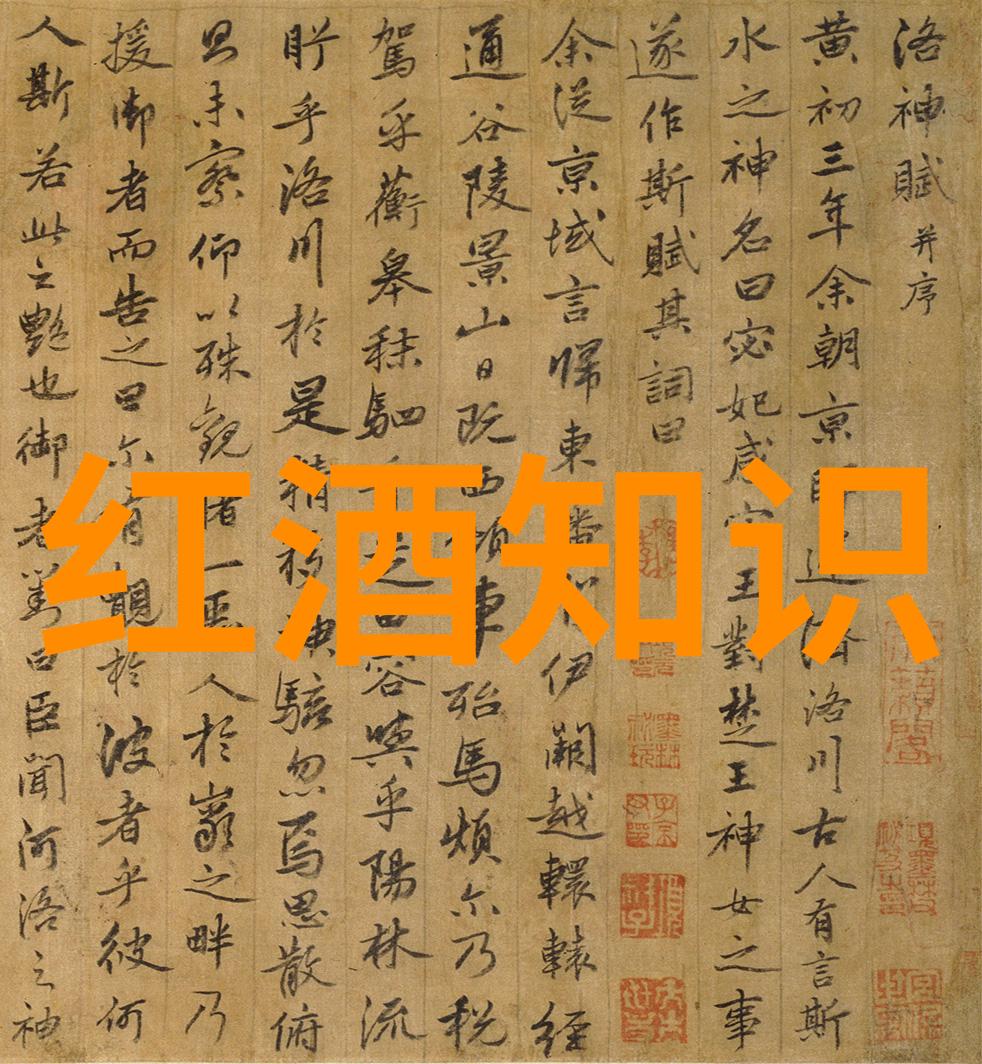 洛神賦 并序
黄初三年余朝京濟洛川古人有言斯
水之神名曰宓妃感宋玉對楚王神女之事
遂作斯賦其詞曰
余從京域言歸東伊闕越轘轅經
通谷陵景山日既西傾車殆馬煩尔乃税
駕乎蘅皋秣駟乎芝田容與乎陽林流
眄乎洛川於是精移神駭忽焉思散俯
則未察仰以殊觀覩一麗人於巖之畔乃
援御者而告之曰尔有覿於彼者乎彼何
人斯若此之艷也御者對曰臣聞河洛之神
红酒知识